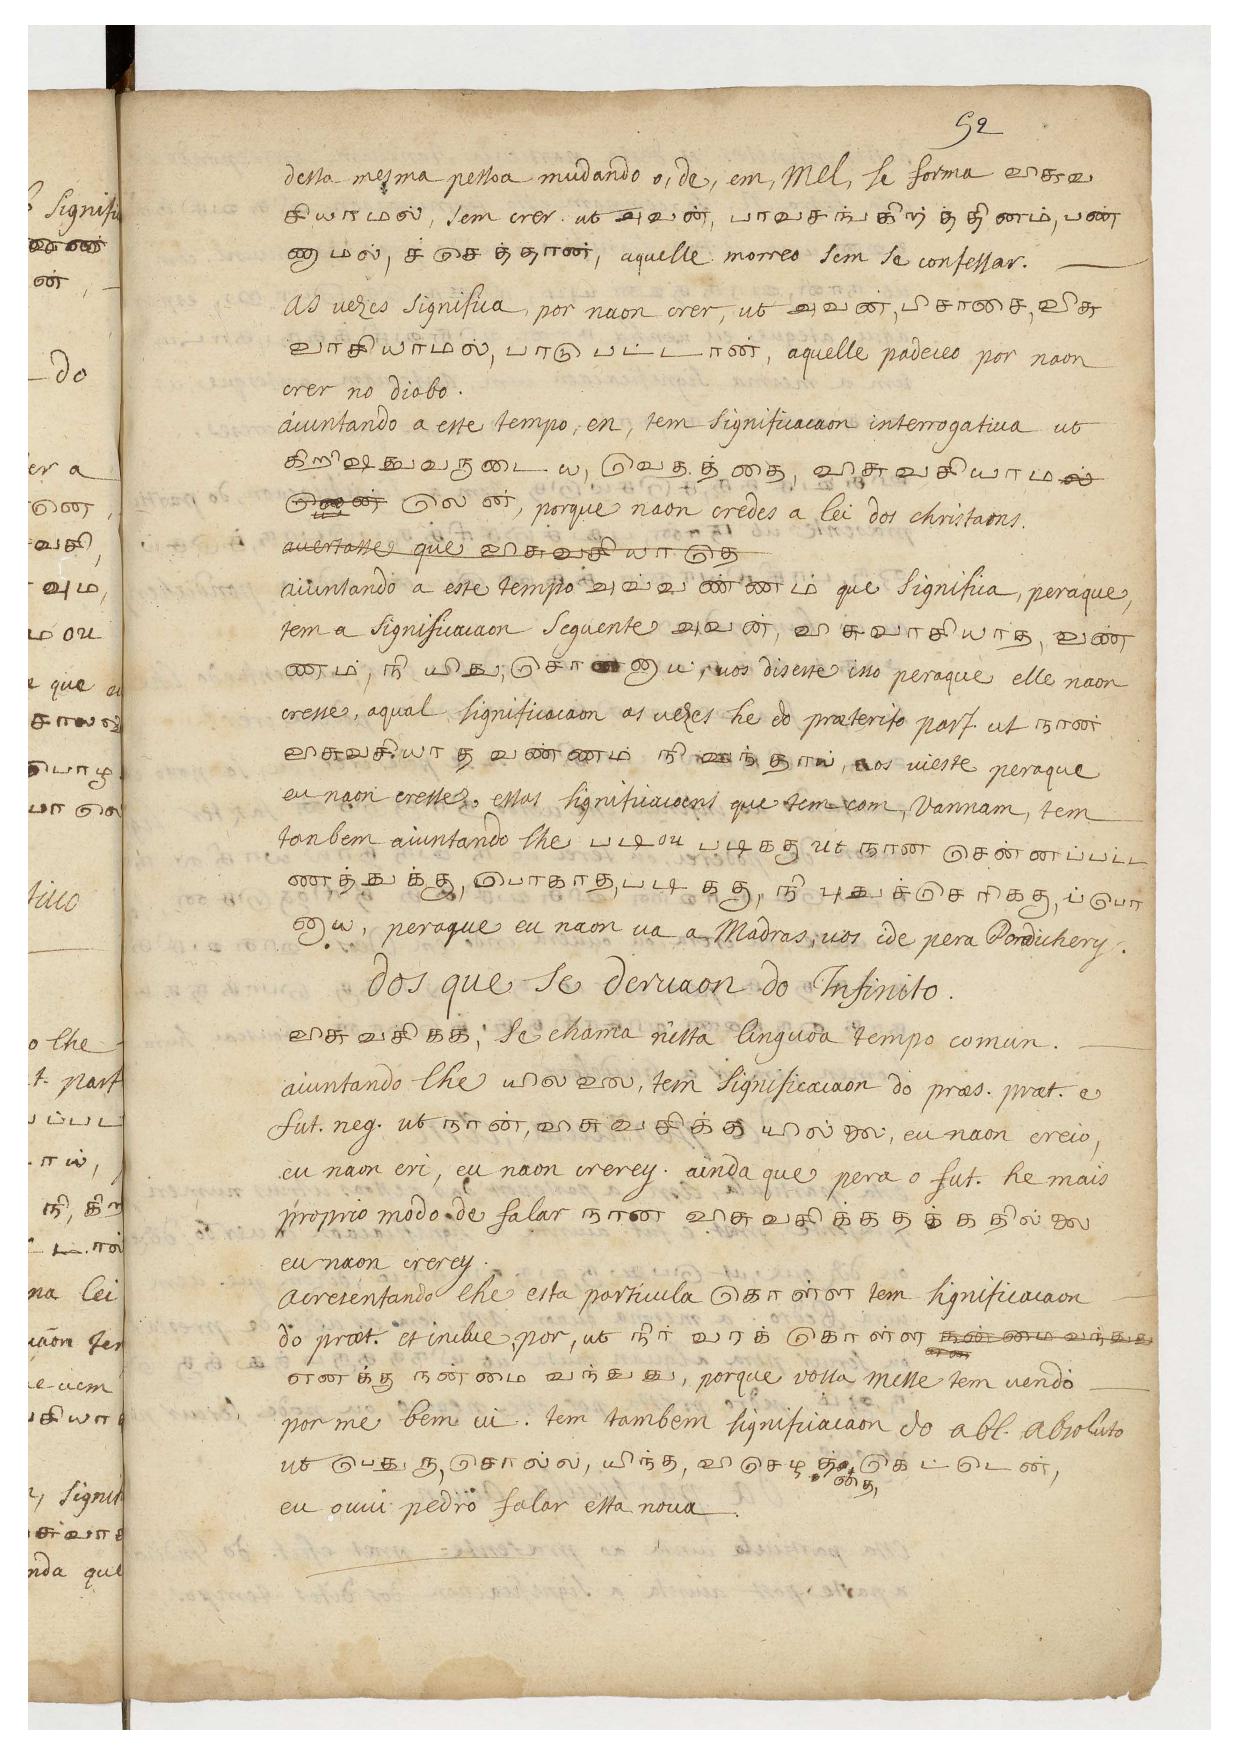 52
desta mesma pessoa mudando o, de, em, Mel, se forma விசுவ
சியாமல், sem crer. ut அவன், பாவசங்கிர்த்தினம், பண்
ணமல், ச்செத்தான், aquelle morreo sem se confessar.
As vezes significa, por naon crer, ut அவன், பிசாசை, விசு
வாசியாமல், பாடுபட்டான், aquelle padeceo por naon
crer no diabo.
aiuntando a este tempo, en, tem significacaon interrogativa ut
கிறிஷதுவருடைய, வெத.த்தை, விசுவசியாமல்
லென், porque naon credes a lei dos christaons.
avertasse que விசுவசியாதெ
aiuntando a este tempo அவ்வண்ணம் que significa, peraque,
tem a significacaon seguente அவன், விசுவாசியாத, வண்
ணம், நி யிது, சொனனய, vos diseste isto peraque elle naon
cresse, aqual significacaon as vezes he do præterito part. ut நான்
விசுவசியாத வண்ணம் நி வந்தாய், vos vieste peraque
eu naon cresse. estas significacoens que tem com, vannam, tem
tanbem aiuntando lhe படி ou படிகதுut நான சென்னப்பட்ட
ணத்துக்கு, பொகாத, படி கது, நி புதுச்செரிகது, ப்பொ
னய, peraque eu naon va a Madras, vos ide pera Pondichery.
dos que se derivaon do Infinito.
விசுவசிகக, se chama nesta linguoa tempo comun.
aiuntando lhe யிலலை, tem significacaon do præs. præt. e
fut. neg. ut நான், விசுவசிக்க யில்லை, eu naon creio,
eu naon cri, eu naon crerey. ainda que pera o fut. he mais
proprio modo de falar நான விசுவசிக்கதக்கதில்லை
eu naon crerey.
Acresentando lhe esta particula கொள்ள tem significacaon
do præt. et inclue, por, ut நிர் வரக் கொள்ள
எனக்கு நன்மை வந்துது, porque vossa messe tem vendo
por me bem vi. tem tambem significacaon do abl. absoluto
ut பெதுரு, சொல்ல, யிந்த, விசெழத்தை, கெட்டென்,
eu ouvi pedro falar esta nova.